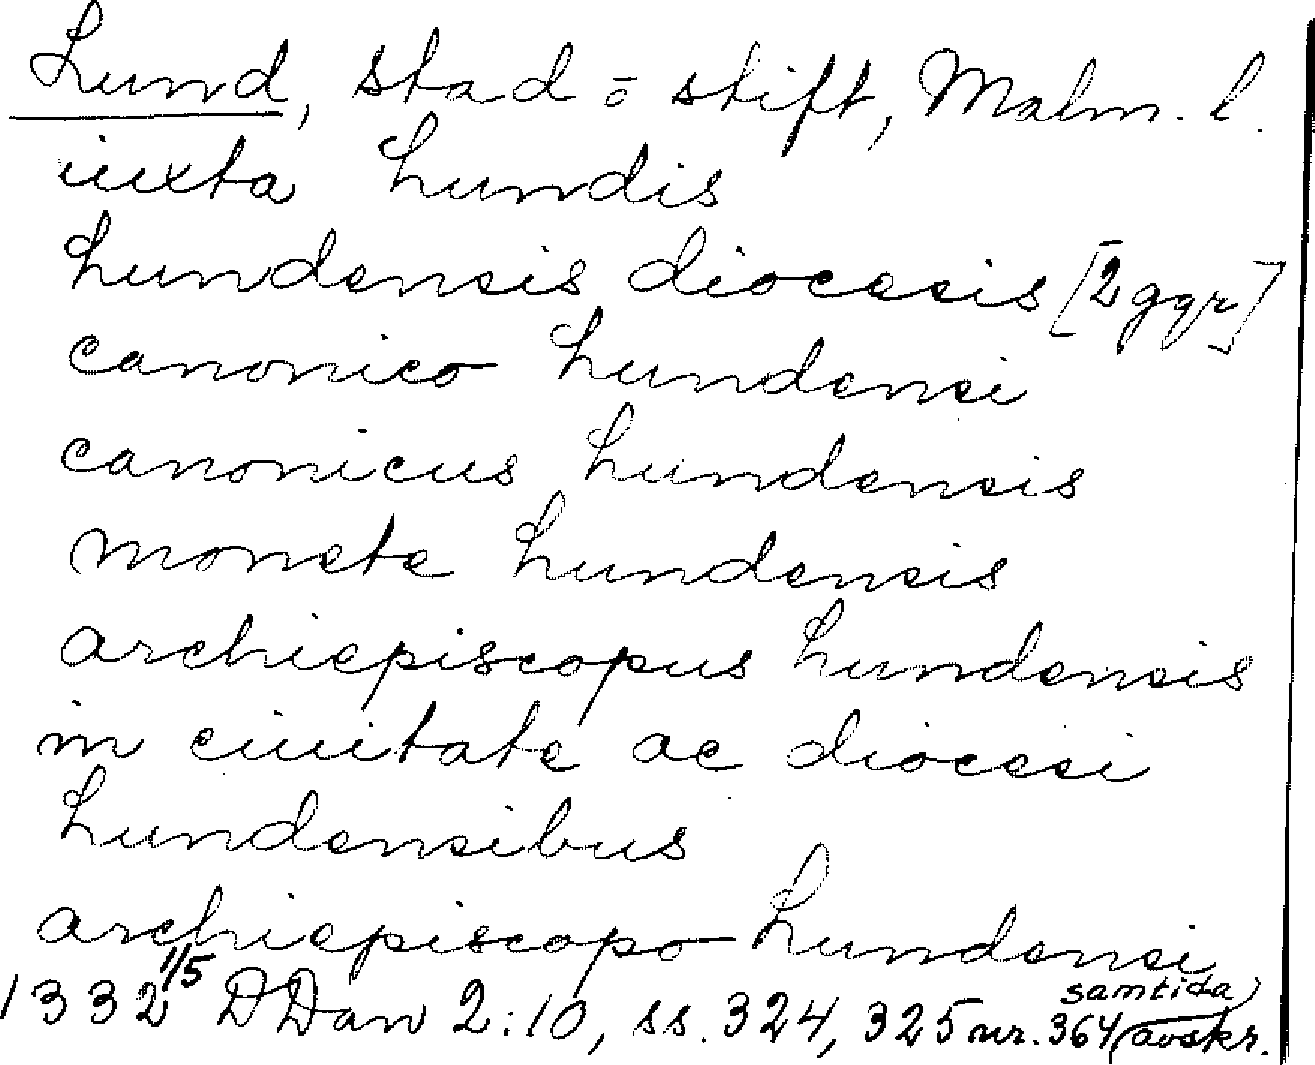 Lund, stad o stift, Malm. l.
iuxta Lundis
Lundensis diocesis [2 ggr]
canonico Lundensi
canonicus Lundensis
monete Lundensis
archiepiscopus Lundensis
in ciuitate ac diocesi
Lundensibus
archiepiscopo Lundensi
1332 1/5 DDan 2:10, ss. 324, 325 nr. 364 (samtida avskr.)